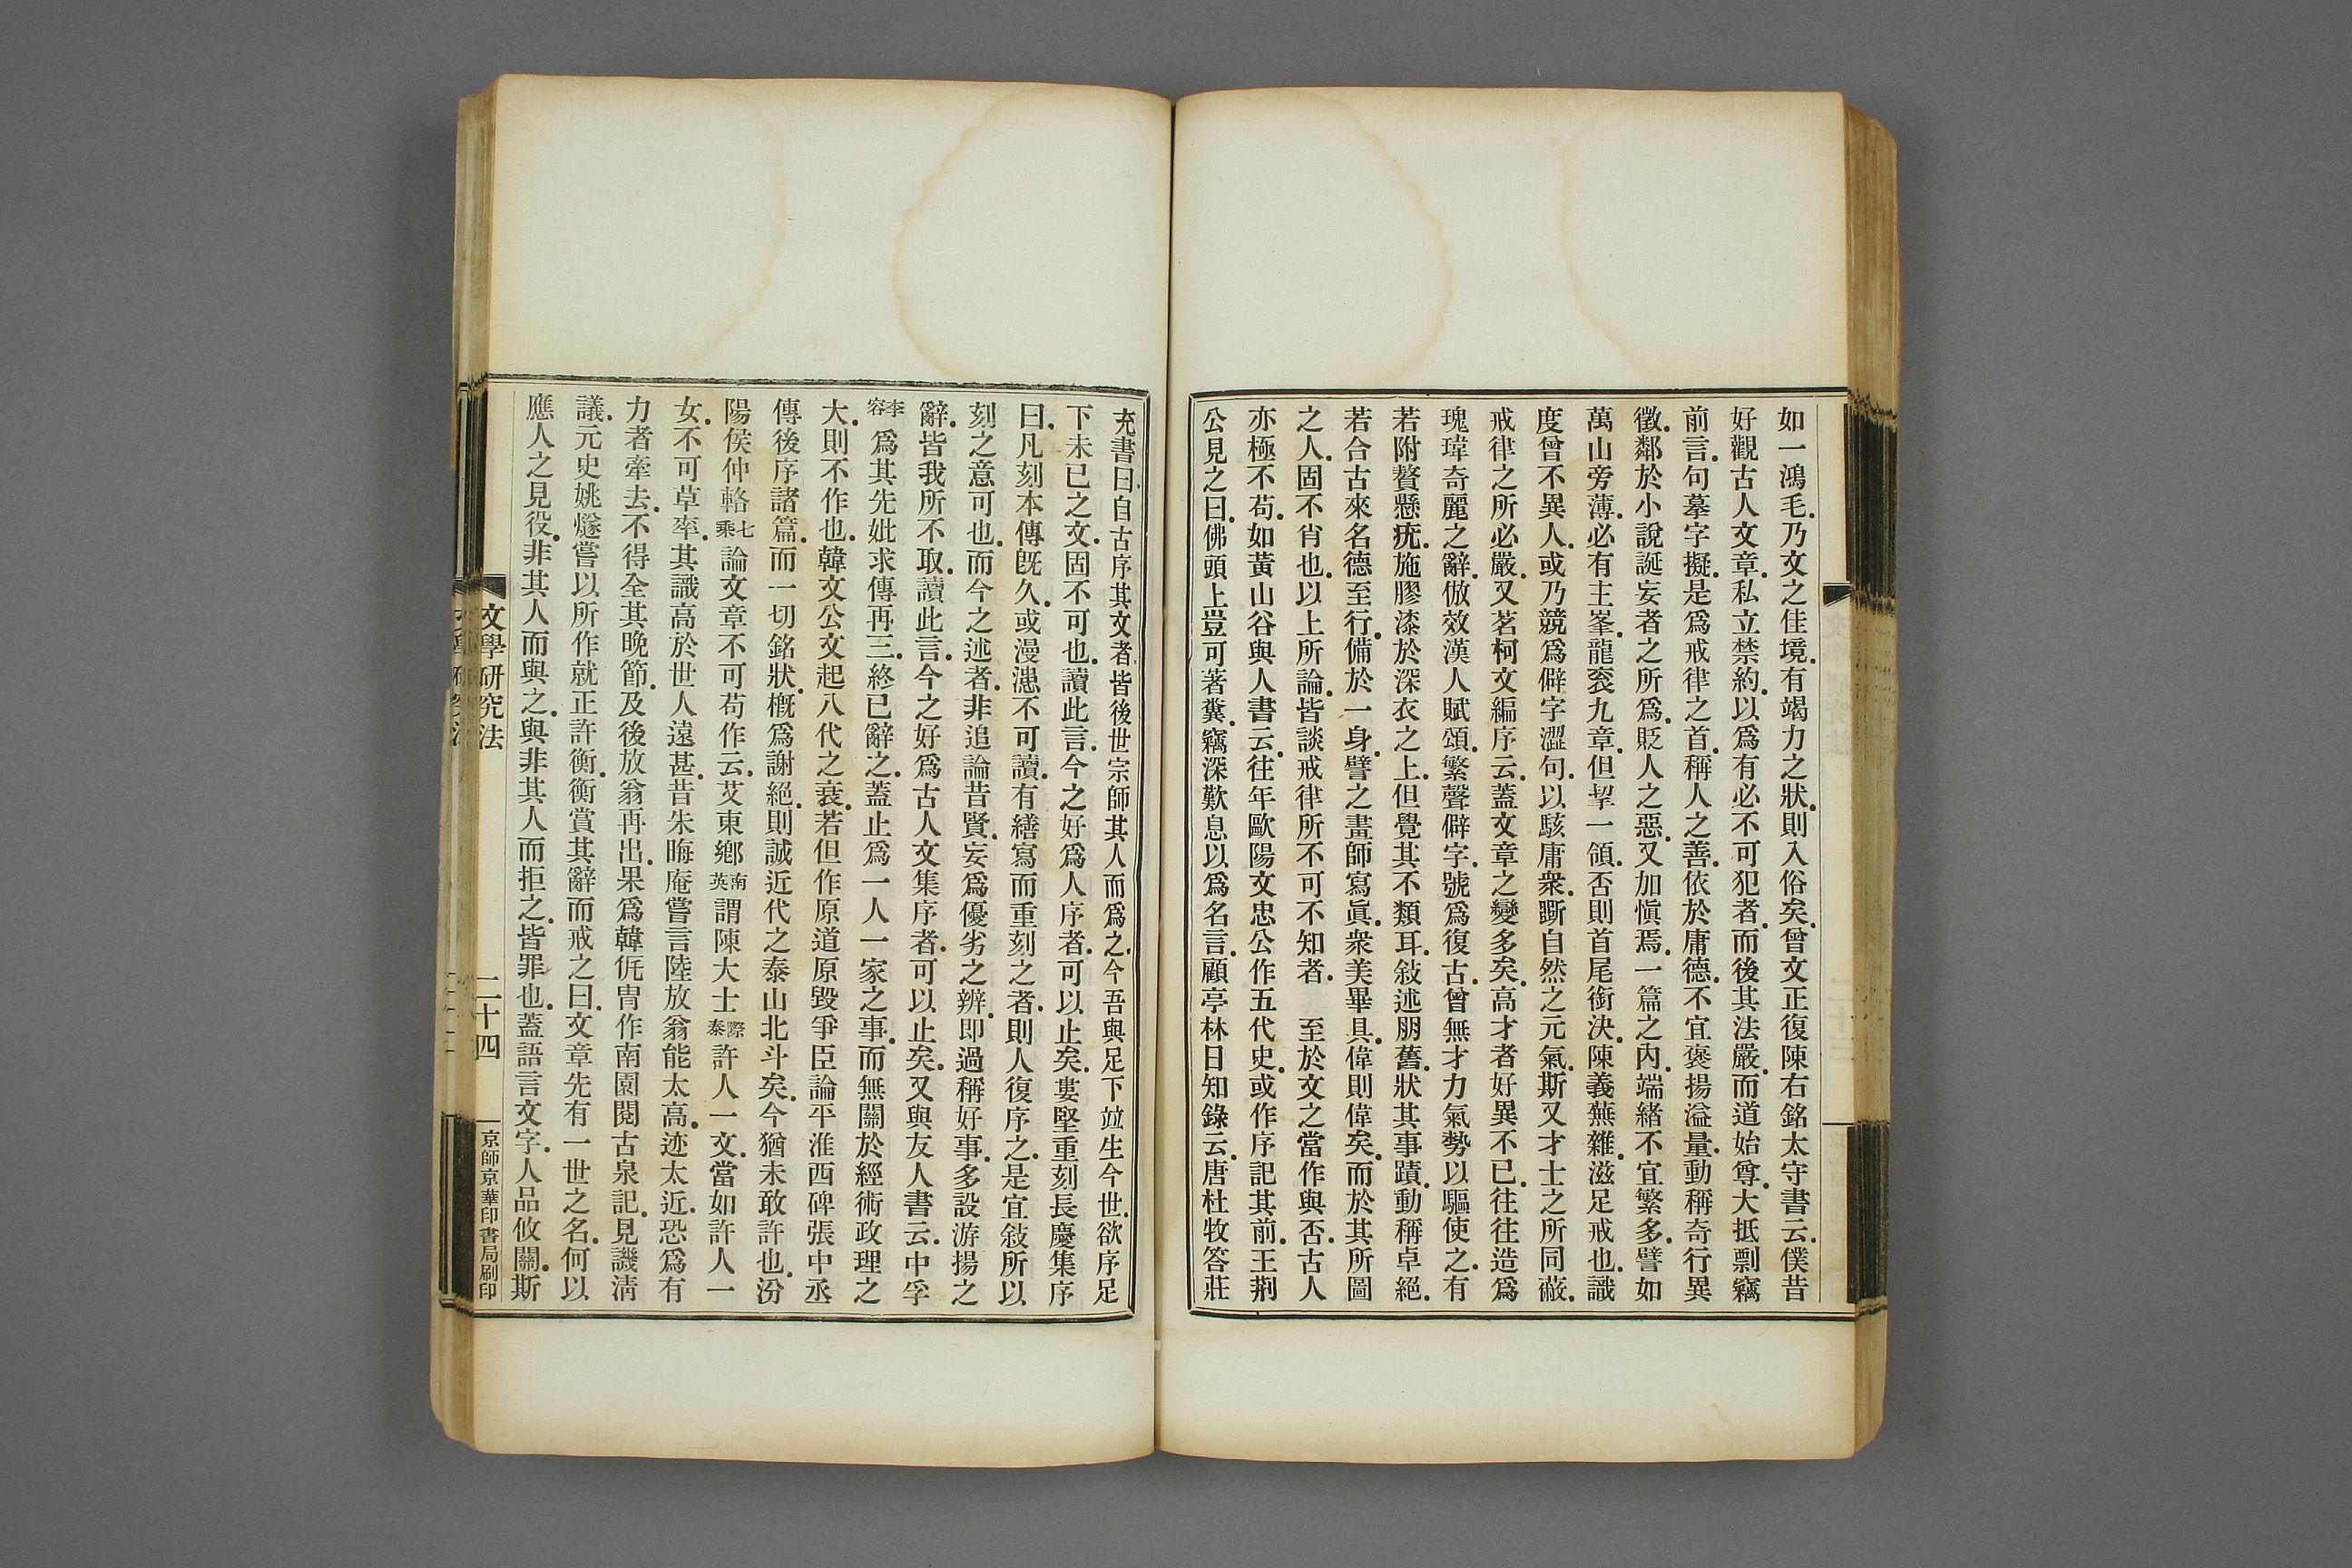 如一鴻毛乃文之佳境有竭力之狀則入俗矣曾文正復陳右銘太守書云僕昔
好觀古人文章私立禁約以爲有必不可犯者而後其法嚴而道始尊大抵剽竊
前言句摹字擬是爲戒律之首稱人之善依於庸德不宜褒揚溢量動稱奇行異
徵鄰於小說誕妄者之所爲貶人之惡又加愼焉一篇之內端緒不宜繁多譬如
萬山旁薄必有主峯龍袞九章但挈一領否則首尾衝決陳義蕪雜滋足戒也識
度曾不異人或乃競爲僻字澀句以駭庸衆斲自然之元氣斯又才士之所同蔽
戒律之所必嚴又茗柯文編序云蓋文章之變多矣高才者好異不已往往造爲
瑰瑋奇麗之辭倣效漢人賦頌繁聲僻字號爲復古曾無才力氣勢以驅使之有
若附贅懸疣施膠漆於深衣之上但覺其不類耳敍述朋舊狀其事蹟動稱卓絕
若合古來名德至行備於一身譬之畫師寫眞衆美畢具偉則偉矣而於其所圖
之人固不肖也以上所論皆談戒律所不可不知者　至於文之當作與否古人
亦極不苟如黃山谷與人書云往年歐陽文忠公作五代史或作序記其前王荆
公見之曰佛頭上豈可著糞竊深歎息以爲名言顧亭林日知錄云唐杜牧答莊
充書曰自古序其文者皆後世宗師其人而爲之今吾與足下竝生今世欲序足
下未已之文固不可也讀此言今之好爲人序者可以止矣婁堅重刻長慶集序
曰凡刻本傳旣久或漫漶不可讀有繕寫而重刻之者則人復序之是宜敍所以
刻之意可也而今之述者非追論昔賢妄爲優劣之辨卽過稱好事多設游揚之
辭皆我所不取讀此言今之好爲古人文集序者可以止矣又與友人書云中孚
李容爲其先妣求傳再三終已辭之蓋止爲一人一家之事而無關於經術政理之
大則不作也韓文公文起八代之衰若但作原道原毀爭臣論平淮西碑張中丞
傳後序諸篇而一切銘狀槪爲謝絕則誠近代之泰山北斗矣今猶未敢許也汾
陽侯仲輅七乘論文章不可苟作云艾東鄉南英謂陳大士際泰許人一文當如許人一
女不可草率其識高於世人遠甚昔朱晦庵嘗言陸放翁能太高迹太近恐爲有
力者牽去不得全其晚節及後放翁再出果爲韓侂胄作南園閱古泉記見譏淸
議元史姚燧嘗以所作就正許衡衡賞其辭而戒之曰文章先有一世之名何以
應人之見役非其人而與之與非其人而拒之皆罪也蓋語言文字人品攸關斯
文學研究法
二十四
京師京華印書局刷印